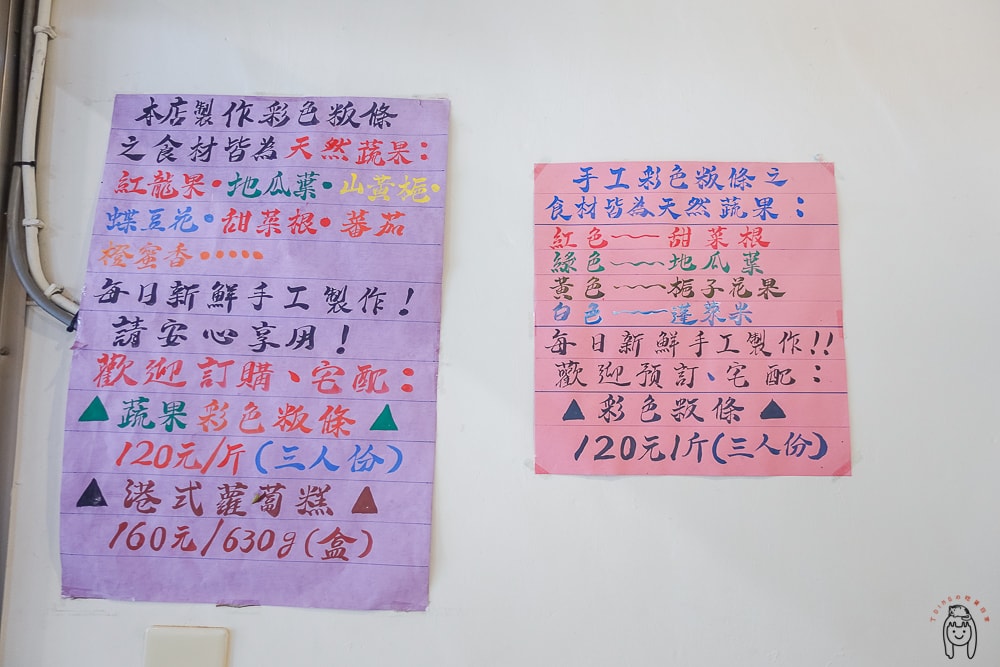 本店製作彩色粄條
之食材皆為天然蔬果：
紅龍果•地瓜葉•山黃梔•
蝶豆花•甜菜根•蕃茄
橙蜜香•••••
每日新鮮手工製作！
請安心享用！
歡迎訂購、宅配：
▲蔬果彩色粄條▲
120元/斤(三人份)
▲港式蘿蔔糕▲
160元/630g(盒)
手工彩色粄條之
食材皆為天然蔬果：
紅色~~甜菜根
綠色~~地瓜葉
黃色~~梔子花果
白色~~蓬萊米
每日新鮮手工製作!!
歡迎預訂、宅配：
▲彩色粄條▲
120元1斤(三人份)